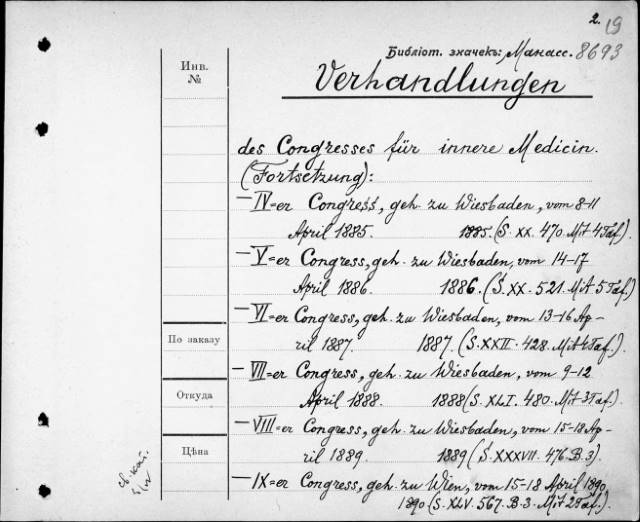 2. 19
Библіот. значекъ: Манасс. 8693
Инв.
№
Verhandlungen
des Congresses für innere Medicin.
(Fortsetzung):
— IV=er Congress, geh. zu Wiesbaden, vom 8-11
April 1885. 1885. (S. XX. 470. Mit 4 Taf.)
— V=er Congress, geh. zu Wiesbaden, vom 14-17
April 1886. 1886. (S. XX. 521. Mit 5 Taf.)
— VI=er Congress, geh. zu Wiesbaden, vom 13-16 Ap-
ril 1887. 1887. (S. XXII. 428. Mit 4 Taf.).
По заказу
— VII=er Congress, geh. zu Wiesbaden, vom 9-12
April 1888. 1888 (S. XLI. 480. Mit 3 Taf.).
Откуда
— VIII=er Congress, geh. zu Wiesbaden, vom 15-18 Ap-
ril 1889. 1889 (S. XXXVII. 476. B. 3).
Цѣна
— IX=er Congress, geh. zu Wien, vom 15-18 April 1890.
1890 (S. XLV. 567. B. 3. Mit 2 Taf.).